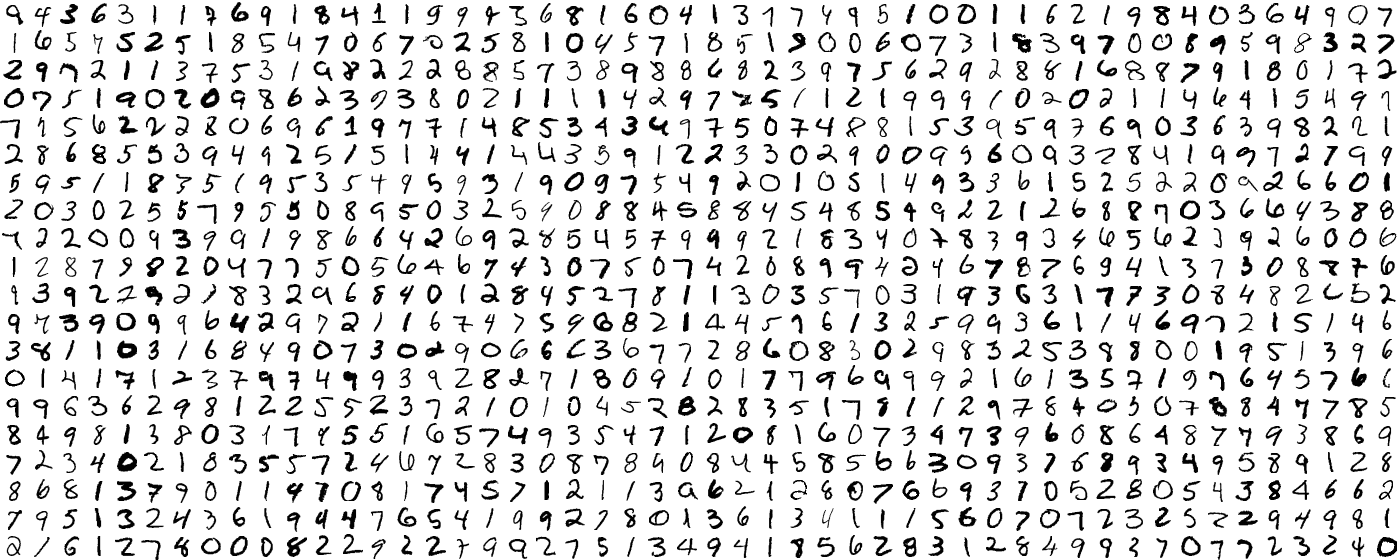 9 4 3 6 3 1 1 7 6 9 1 8 4 1 1 9 9 4 3 6 8 1 6 0 4 1 3 1 7 4 9 5 1 0 0 1 1 6 2 1 9 8 4 0 3 6 4 9 0 7
1 6 5 7 5 2 5 1 8 5 4 7 0 6 7 0 2 5 8 1 0 4 5 7 1 8 5 1 9 0 0 6 0 7 3 1 8 3 9 7 0 0 8 9 5 9 8 3 2 7
2 9 7 2 1 1 3 7 5 3 1 9 8 2 2 2 8 8 5 7 3 8 9 8 8 6 8 2 3 9 7 5 6 2 9 2 8 8 1 6 8 8 7 9 1 8 0 1 7 2
0 7 5 1 9 0 2 0 9 8 6 2 3 9 3 8 0 2 1 1 1 1 4 2 9 7 2 5 1 1 2 1 9 9 9 1 0 2 0 2 1 1 4 6 4 1 5 4 9 7
7 9 5 6 2 2 2 8 0 6 9 6 1 9 7 7 1 4 8 5 3 4 3 4 9 7 5 0 7 4 8 8 1 5 3 9 5 9 7 6 9 0 3 6 3 9 8 2 2 1
2 8 6 8 5 5 3 9 4 9 2 5 1 5 1 4 4 1 4 4 3 5 9 1 2 2 3 3 0 2 9 0 0 9 5 6 0 9 3 2 8 4 1 9 9 7 2 7 9 9
5 9 5 1 1 8 3 5 1 9 5 3 5 4 9 5 9 3 1 9 0 9 7 5 4 9 2 0 1 0 5 1 4 9 3 3 6 1 5 2 5 2 2 0 9 2 6 6 0 1
2 0 3 0 2 5 5 7 9 5 5 0 8 9 5 0 3 2 5 9 0 8 8 4 5 8 8 4 5 4 8 5 4 9 2 2 1 2 6 8 8 7 0 3 6 6 4 3 8 8
7 2 2 0 0 9 3 9 9 1 9 8 6 6 4 2 6 9 2 8 5 4 5 7 9 9 9 2 1 8 3 4 0 7 8 3 9 3 4 6 5 6 2 3 9 2 6 0 0 6
1 2 8 7 9 8 2 0 4 7 7 5 0 5 6 4 6 7 4 3 0 7 5 0 7 4 2 0 8 9 9 4 2 4 6 7 8 7 6 9 4 1 3 7 3 0 8 8 7 6
9 3 9 2 2 9 2 1 8 3 2 9 6 8 4 0 1 2 8 4 5 2 7 8 1 1 3 0 3 5 7 0 3 1 9 3 6 3 1 7 7 3 0 8 4 8 2 6 5 2
9 7 3 9 0 9 9 6 4 4 2 9 7 2 1 1 6 7 4 7 5 9 6 8 2 1 4 4 5 9 6 1 3 2 5 9 9 3 6 1 1 4 6 9 7 2 1 5 1 4 6
3 8 1 1 0 3 1 6 8 4 9 0 7 3 0 2 9 0 6 6 6 3 6 7 7 2 8 6 0 8 3 0 2 9 8 3 2 5 3 8 8 0 0 1 9 5 1 3 9 6
0 1 4 1 7 1 2 3 7 9 7 4 9 9 3 9 2 8 2 7 1 8 0 9 1 0 1 7 7 9 6 9 9 9 2 1 6 1 3 5 7 1 9 7 6 4 5 7 6 6
9 9 6 3 6 2 9 8 1 2 2 5 5 2 3 7 2 1 0 1 0 4 5 2 8 2 8 3 5 1 7 8 1 1 2 9 7 8 4 0 5 0 7 8 8 4 7 7 8 5
8 4 9 8 1 3 8 0 3 1 7 8 5 5 1 6 5 7 4 9 3 5 4 7 1 2 0 8 1 6 0 7 3 4 7 3 9 6 0 8 6 4 8 7 7 9 3 8 6 9
7 2 3 4 0 2 1 8 3 5 5 7 2 4 6 7 2 8 3 0 8 7 8 4 0 8 4 4 5 8 5 6 6 3 0 9 3 7 6 8 9 3 4 9 5 8 9 1 2 8
8 6 8 1 3 7 9 0 1 1 4 7 0 8 1 7 4 5 7 1 2 1 1 3 0 6 2 1 2 8 0 7 6 6 9 3 7 0 5 2 8 0 5 4 3 8 4 6 6 2
7 9 5 1 3 2 4 3 6 1 9 4 4 7 6 5 4 1 9 9 2 7 8 0 1 3 6 1 3 4 1 1 1 5 6 0 7 0 7 2 3 2 5 2 2 9 4 9 8 1
2 1 6 1 2 7 8 0 0 0 8 2 2 9 2 2 7 9 9 2 7 5 1 3 4 9 4 1 8 5 6 2 8 3 1 2 8 4 9 9 3 7 0 7 7 2 3 2 4 0